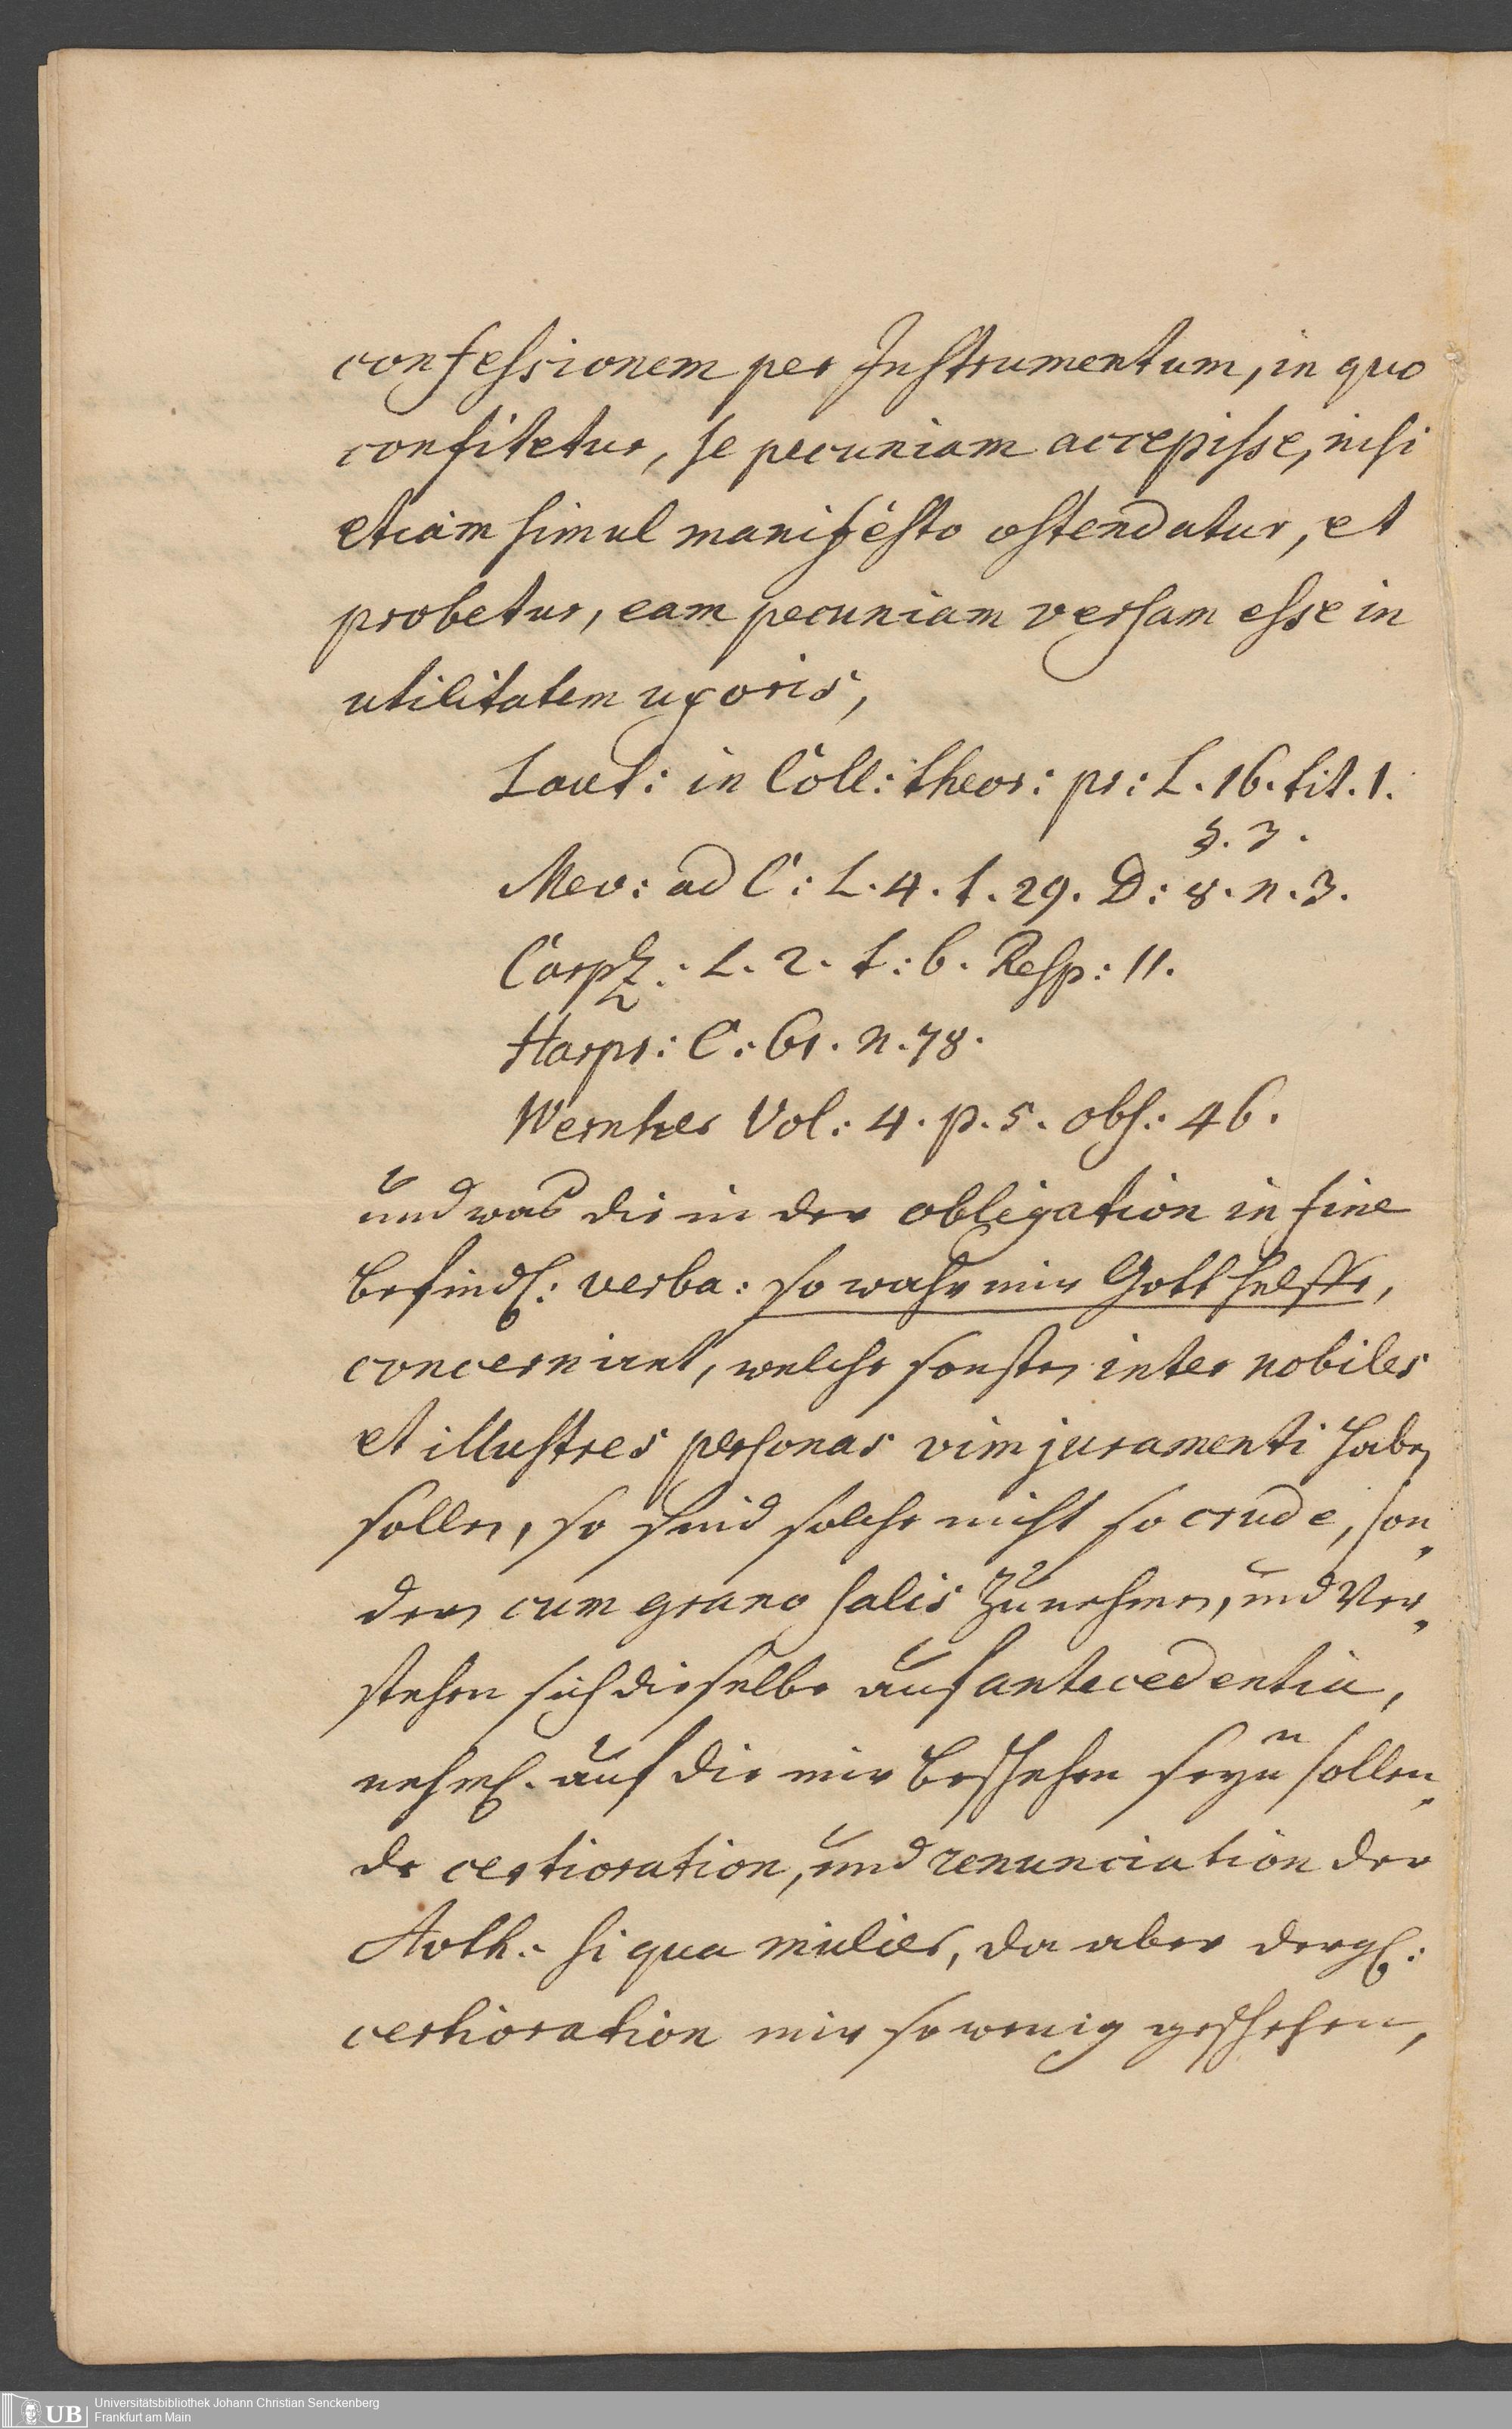 confessionem per Instrumentum, in quo
confitetur, se pecuniam accepisse, nisi
etiam simul manifesto ostendatur, et
probetur, eam pecuniam versam esse in
utilitatem uxoris,
Laut: in Coll: theor: pr: L. 16. tit. 1.
§. 3.
Mev: ad C: L. 4. t. 29. D: 8. n. 3.
Carpz: L. 2. t: 6. Resp: 11.
Harpr: C: 61. n. 78.
Wernher Vol: 4. p. 5. obs: 46.
und was die in der obligation in fine
befindl: verba: so wahr mir Gott helffe,
concernirt, welche sonsten inter nobiles
et illustres personas vim juramenti haben
sollen, so seind solche nicht so crude, son„
dern cum grano salis zu nehmen, und Ver„
stehen sich dieselbe auf antecedentia,
nehml. auf die mir beschehen seyn sollen„
de certioration, und renunciation der
Auth: si qua mulier, da aber dergl:
certioration mir so wenig geschehen,
Universitätsbibliothek Johann Christian Senckenberg
Frankfurt am Main
UB